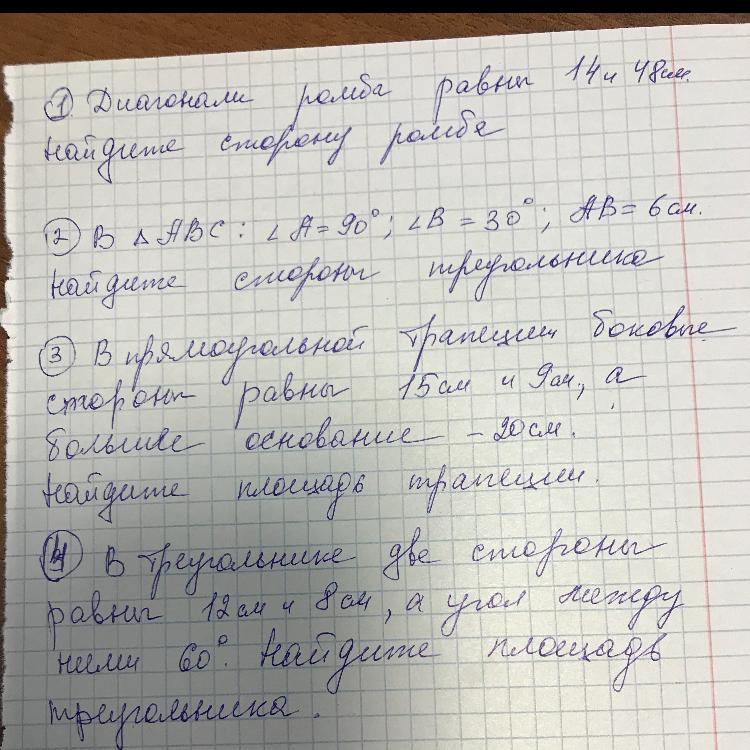 ① Диагонали ромба равны 14 и 48см.
Найдите сторону ромба
② В △ ABC: ∠A=90°; ∠B=30°; AB=6см.
Найдите стороны треугольника
③ В прямоугольной трапеции боковые
стороны равны 15см и 9см, а
большее основание - 20см.
Найдите площадь трапеции.
④ В треугольнике две стороны
равны 12см и 8см, а угол между
ними 60°. Найдите площадь
треугольника.